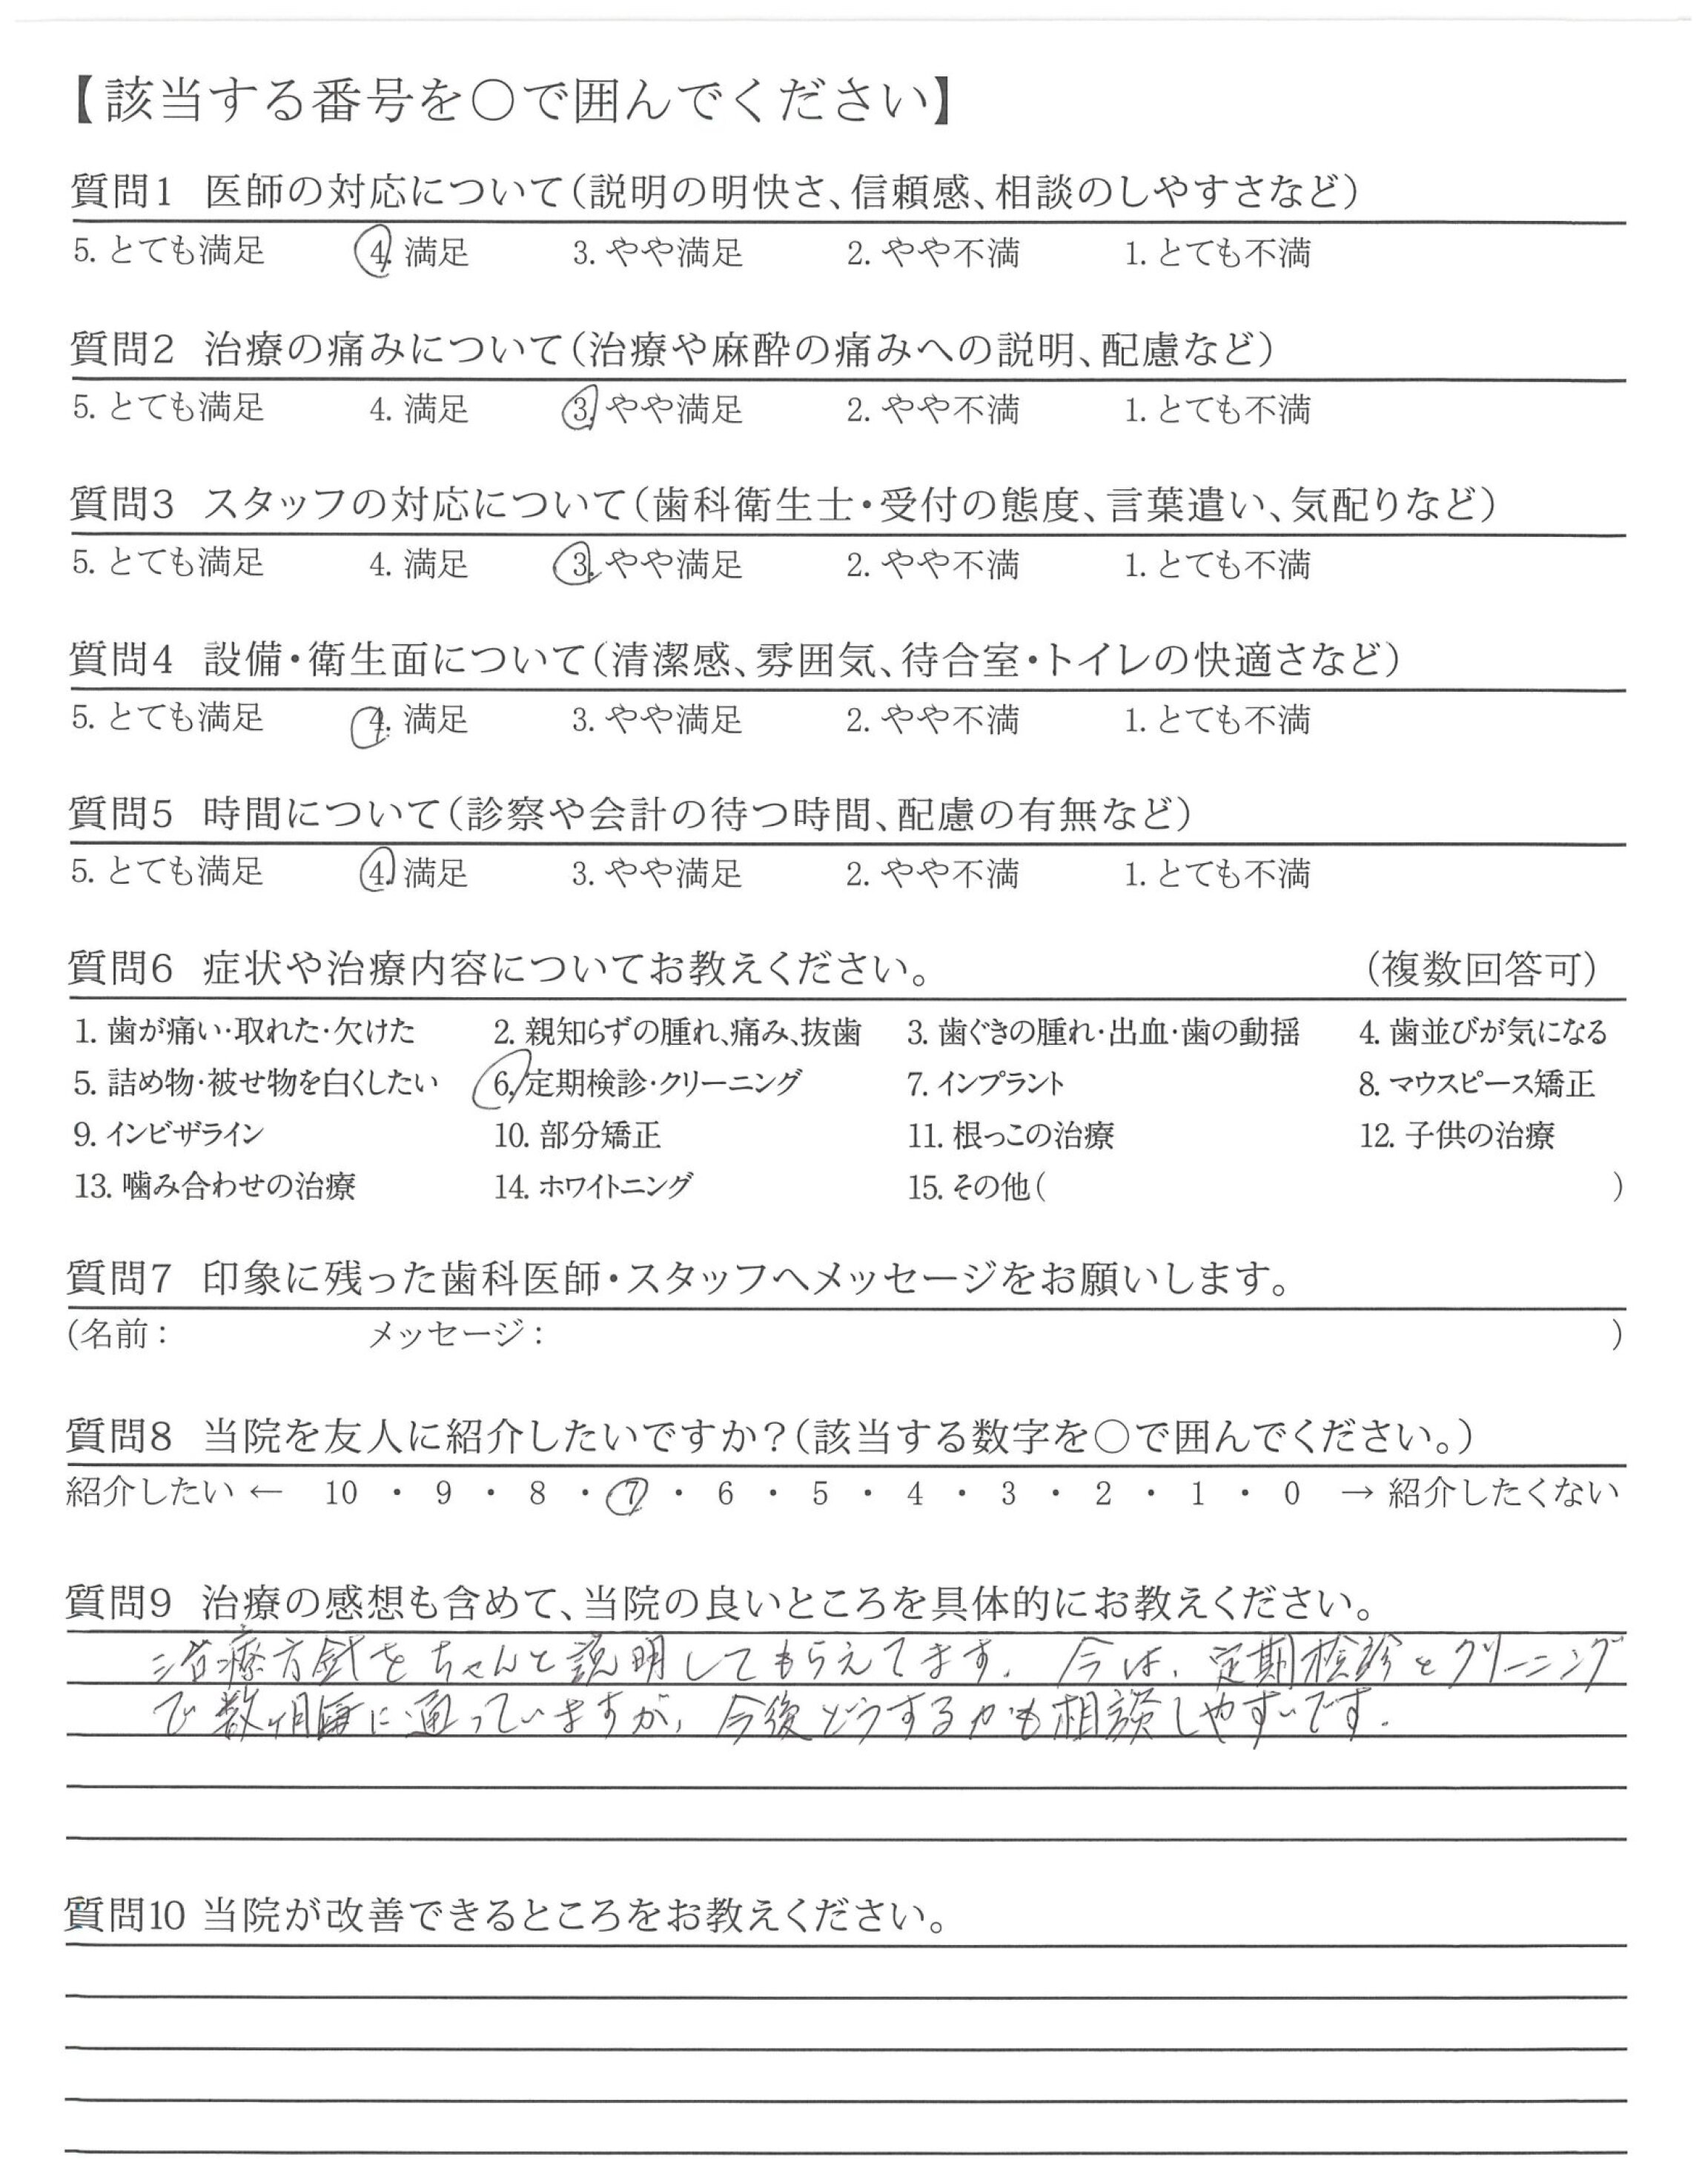 【該当する番号を〇で囲んでください】
質問1 医師の対応について（説明の明快さ、信頼感、相談のしやすさなど）
5. とても満足 4. 満足 3. やや満足 2. やや不満 1. とても不満
質問2 治療の痛みについて（治療や麻酔の痛みへの説明、配慮など）
5. とても満足 4. 満足 3. やや満足 2. やや不満 1. とても不満
質問3 スタッフの対応について（歯科衛生士・受付の態度、言葉遣い、気配りなど）
5. とても満足 4. 満足 3. やや満足 2. やや不満 1. とても不満
質問4 設備・衛生面について（清潔感、雰囲気、待合室・トイレの快適さなど）
5. とても満足 4. 満足 3. やや満足 2. やや不満 1. とても不満
質問5 時間について（診察や会計の待つ時間、配慮の有無など）
5. とても満足 4. 満足 3. やや満足 2. やや不満 1. とても不満
質問6 症状や治療内容についてお教えください。 （複数回答可）
1. 歯が痛い・取れた・欠けた 2. 親知らずの腫れ、痛み、抜歯 3. 歯ぐきの腫れ・出血・歯の動揺 4. 歯並びが気になる
5. 詰め物・被せ物を白くしたい 6. 定期検診・クリーニング 7. インプラント 8. マウスピース矯正
9. インビザライン 10. 部分矯正 11. 根っこの治療 12. 子供の治療
13. 噛み合わせの治療 14. ホワイトニング 15. その他（ ）
質問7 印象に残った歯科医師・スタッフへメッセージをお願いします。
（名前： メッセージ： ）
質問8 当院を友人に紹介したいですか？（該当する数字を〇で囲んでください。）
紹介したい ← 10 ・ 9 ・ 8 ・ 7 ・ 6 ・ 5 ・ 4 ・ 3 ・ 2 ・ 1 ・ 0 → 紹介したくない
質問9 治療の感想も含めて、当院の良いところを具体的にお教えください。
治療方針をちゃんと説明してもらえてます。今は、定期検診とクリーニング
で数ヶ月毎に通っていますが、今後どうするかも相談しやすいです。
質問10 当院が改善できるところをお教えください。